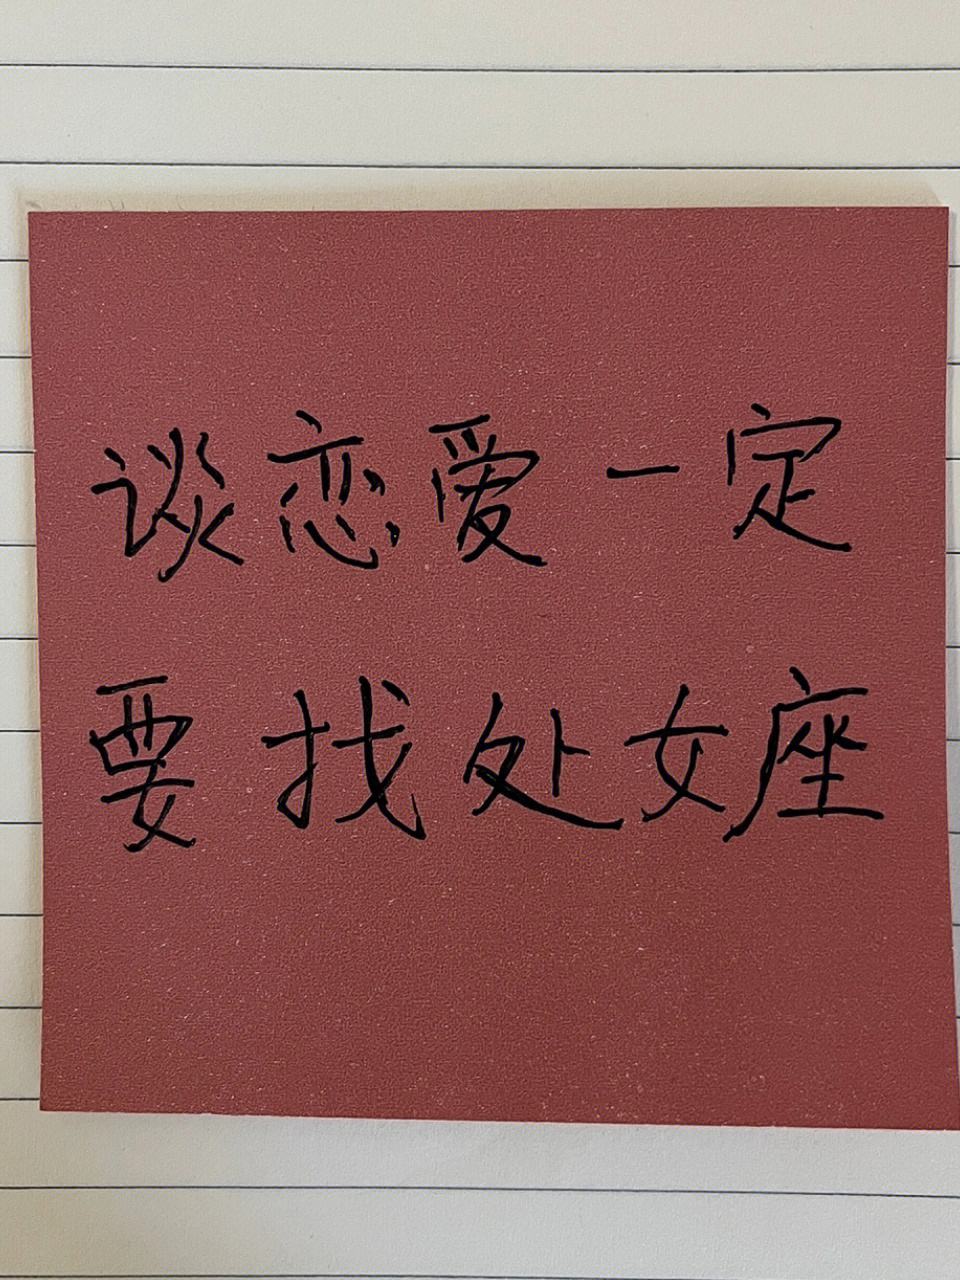 谈恋爱一定
要找处女座